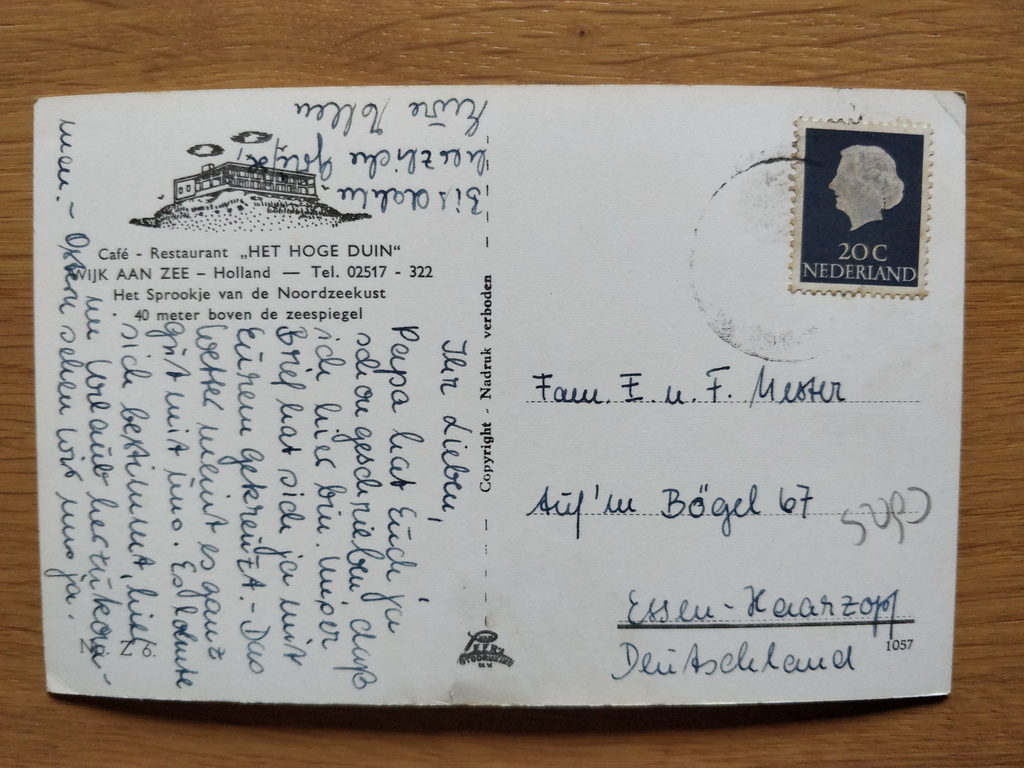 Café - Restaurant „HET HOGE DUIN“
WIJK AAN ZEE – Holland — Tel. 02517 - 322
Het Sprookje van de Noordzeekust
40 meter boven de zeespiegel
Ihr Lieben,
Papa hat Euch ja
schon geschrieben, daß
ich hier bin. Unser
Brief hat sich ja mit
Eurem gekreuzt. - Das
Wetter meint es ganz
gut mit uns. Es lohnte
sich bestimmt, hier
im Urlaub herzukom-
men. - Ostern sehen wir uns ja.
Bis dahin
herzliche Grüße,
Eure
Copyright - Nadruk verboden
20 C
NEDERLAND
Fam. E. u. F. Mester
Auf'm Bögel 67
Essen-Haarzopf
Deutschland
1057